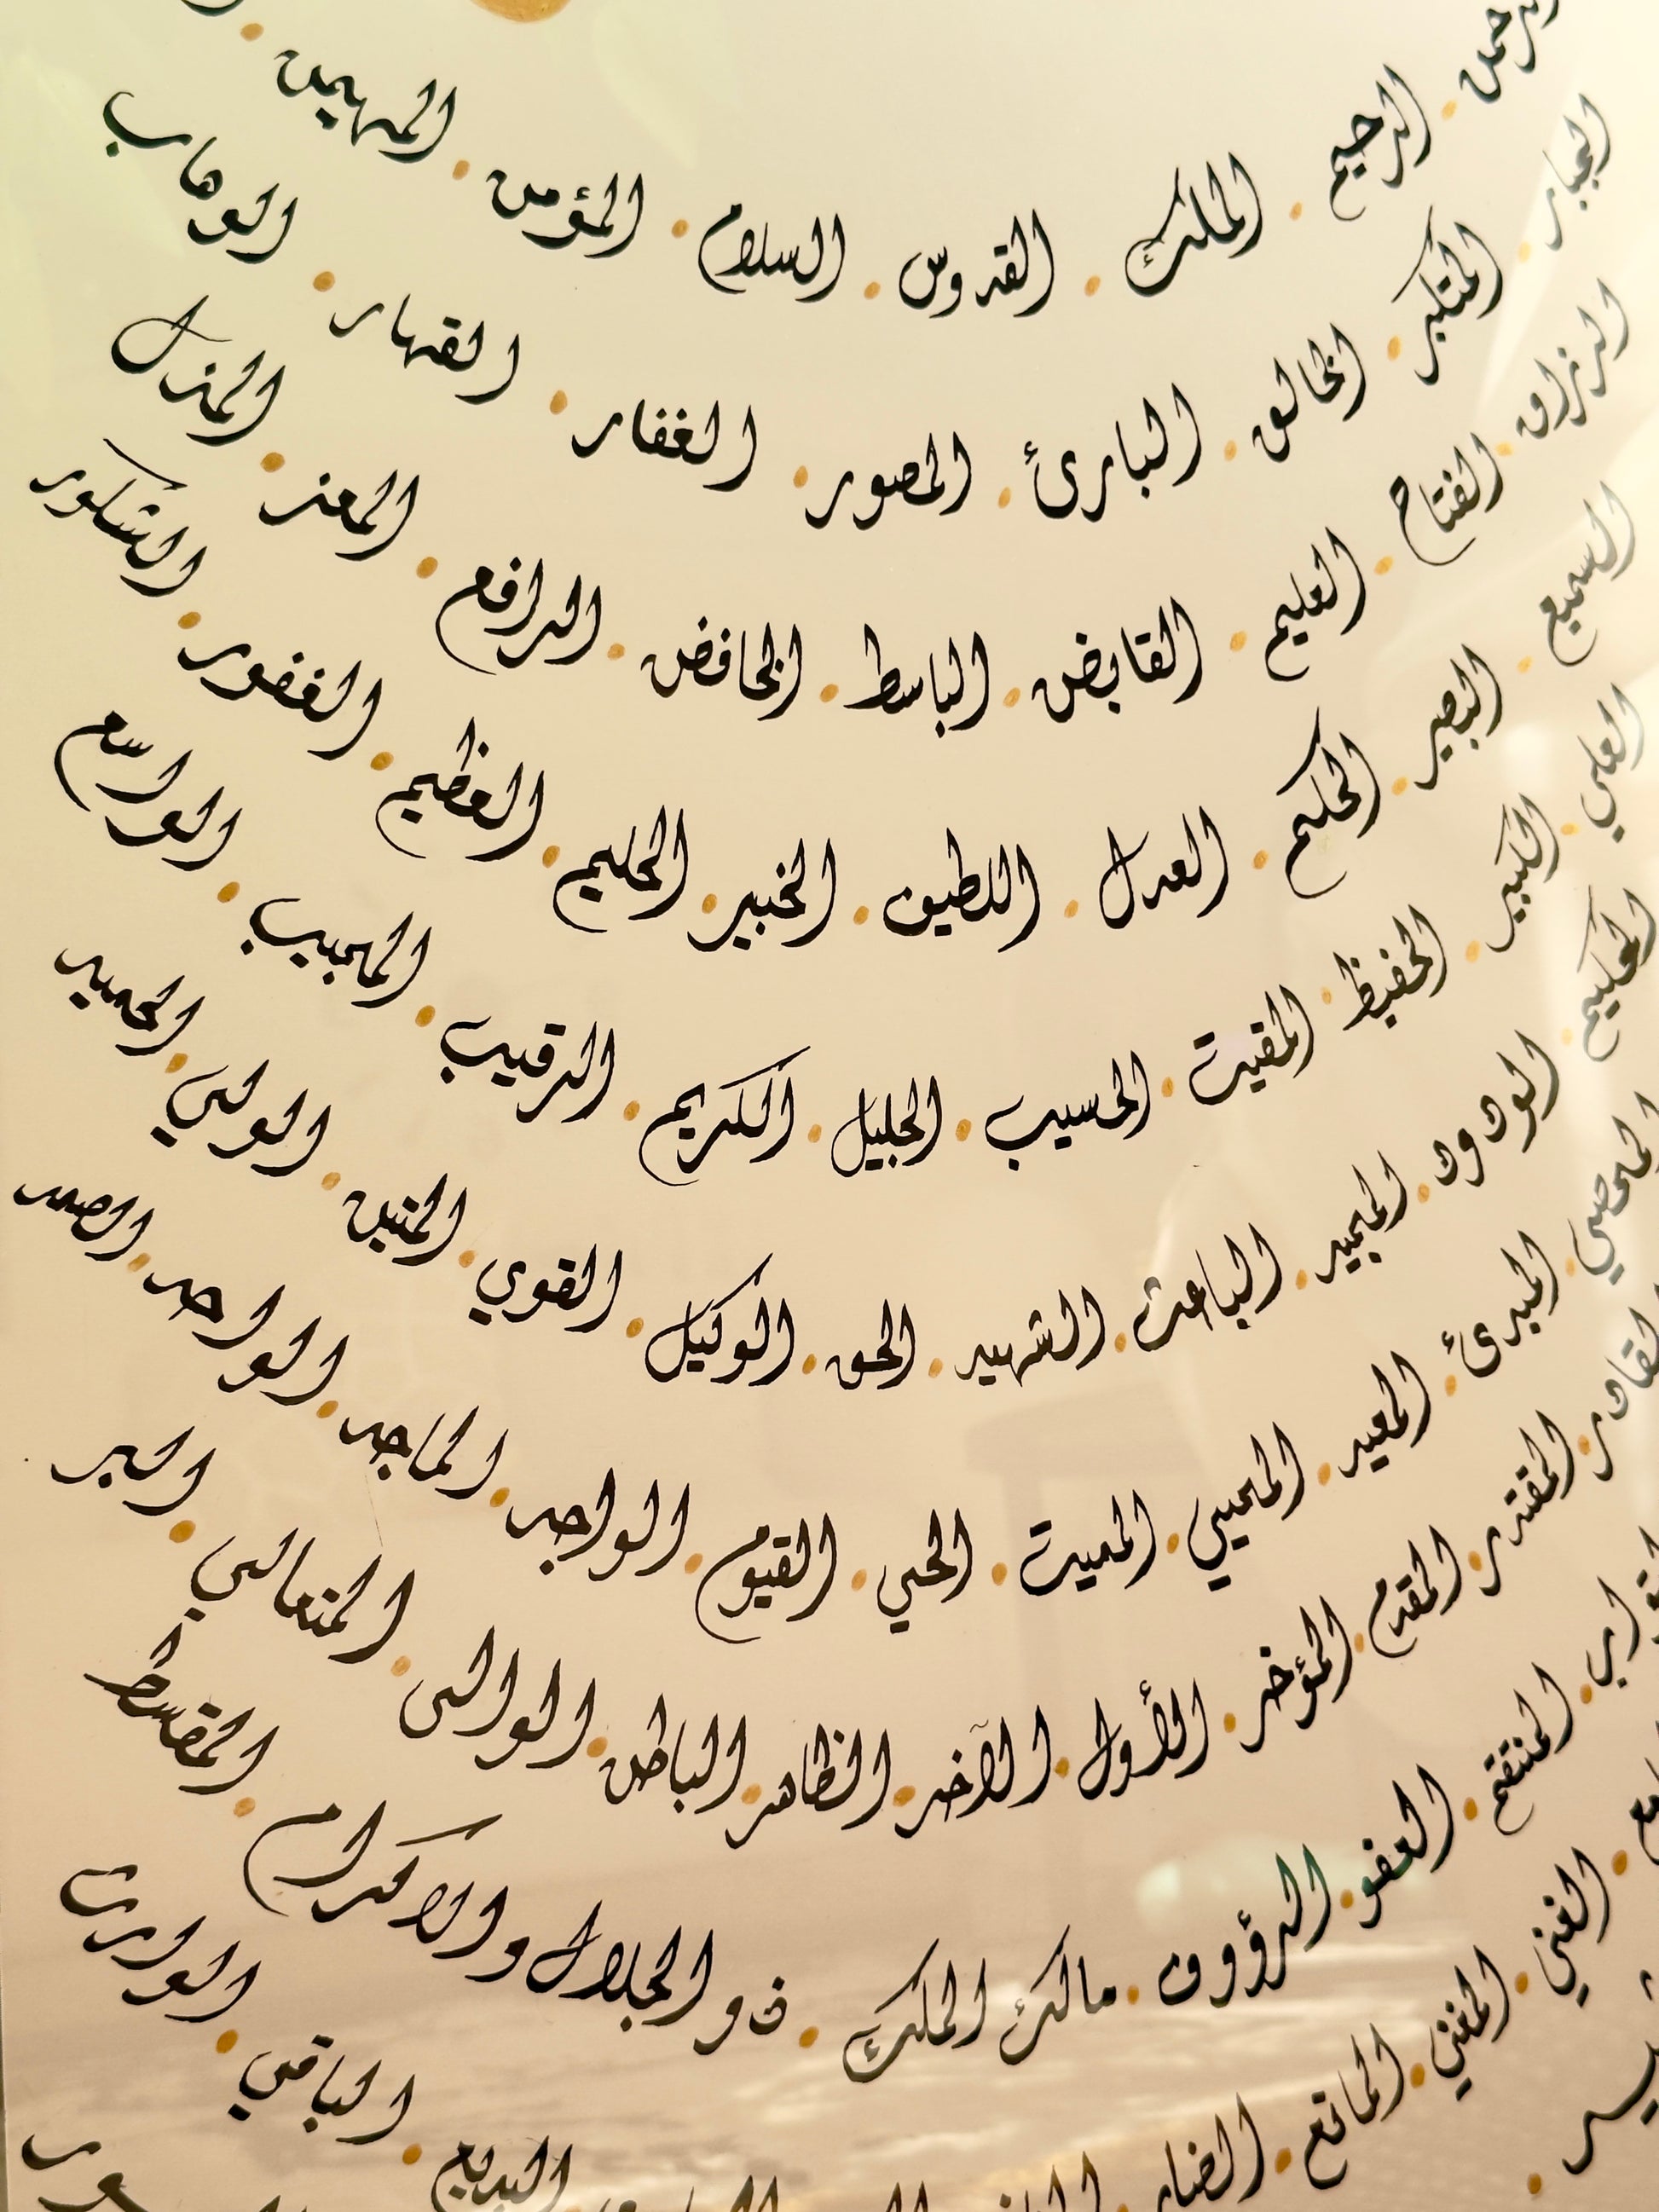 الرحمن . الرحيم . الملك . القدوس . السلام . المؤمن . المهيمن .
الجبار . المتكبر . الخالق . البارئ . المصور . الغفار . القهار . الوهاب
الرزاق . الفتاح . العليم . القابض . الباسط . الخافض . الرافع . المعز . المذل
السميع . البصير . الحكم . العدل . اللطيف . الخبير . الحليم . العظيم . الغفور . الشكور
العلي . الكبير . الحفيظ . المقيت . الحسيب . الجليل . الكريم . الرقيب . المجيب . الواسع
الحكيم . الودود . المجيد . الباعث . الشهيد . الحق . الوكيل . القوي . المتين . الولي . الحميد
المحصي . المبدئ . المعيد . المحيي . المميت . الحي . القيوم . الواجد . الماجد . الواحد . الصمد
القادر . المقتدر . المقدم . المؤخر . الأول . الآخر . الظاهر . الباطن . الوالى . المتعالي . البر
المنتقم . العفو . الرؤوف . مالك الملك . ذو الجلال والاكرام . المقسط
الغني . المغني . المانع . الضار البديع . الباقي . الوارث